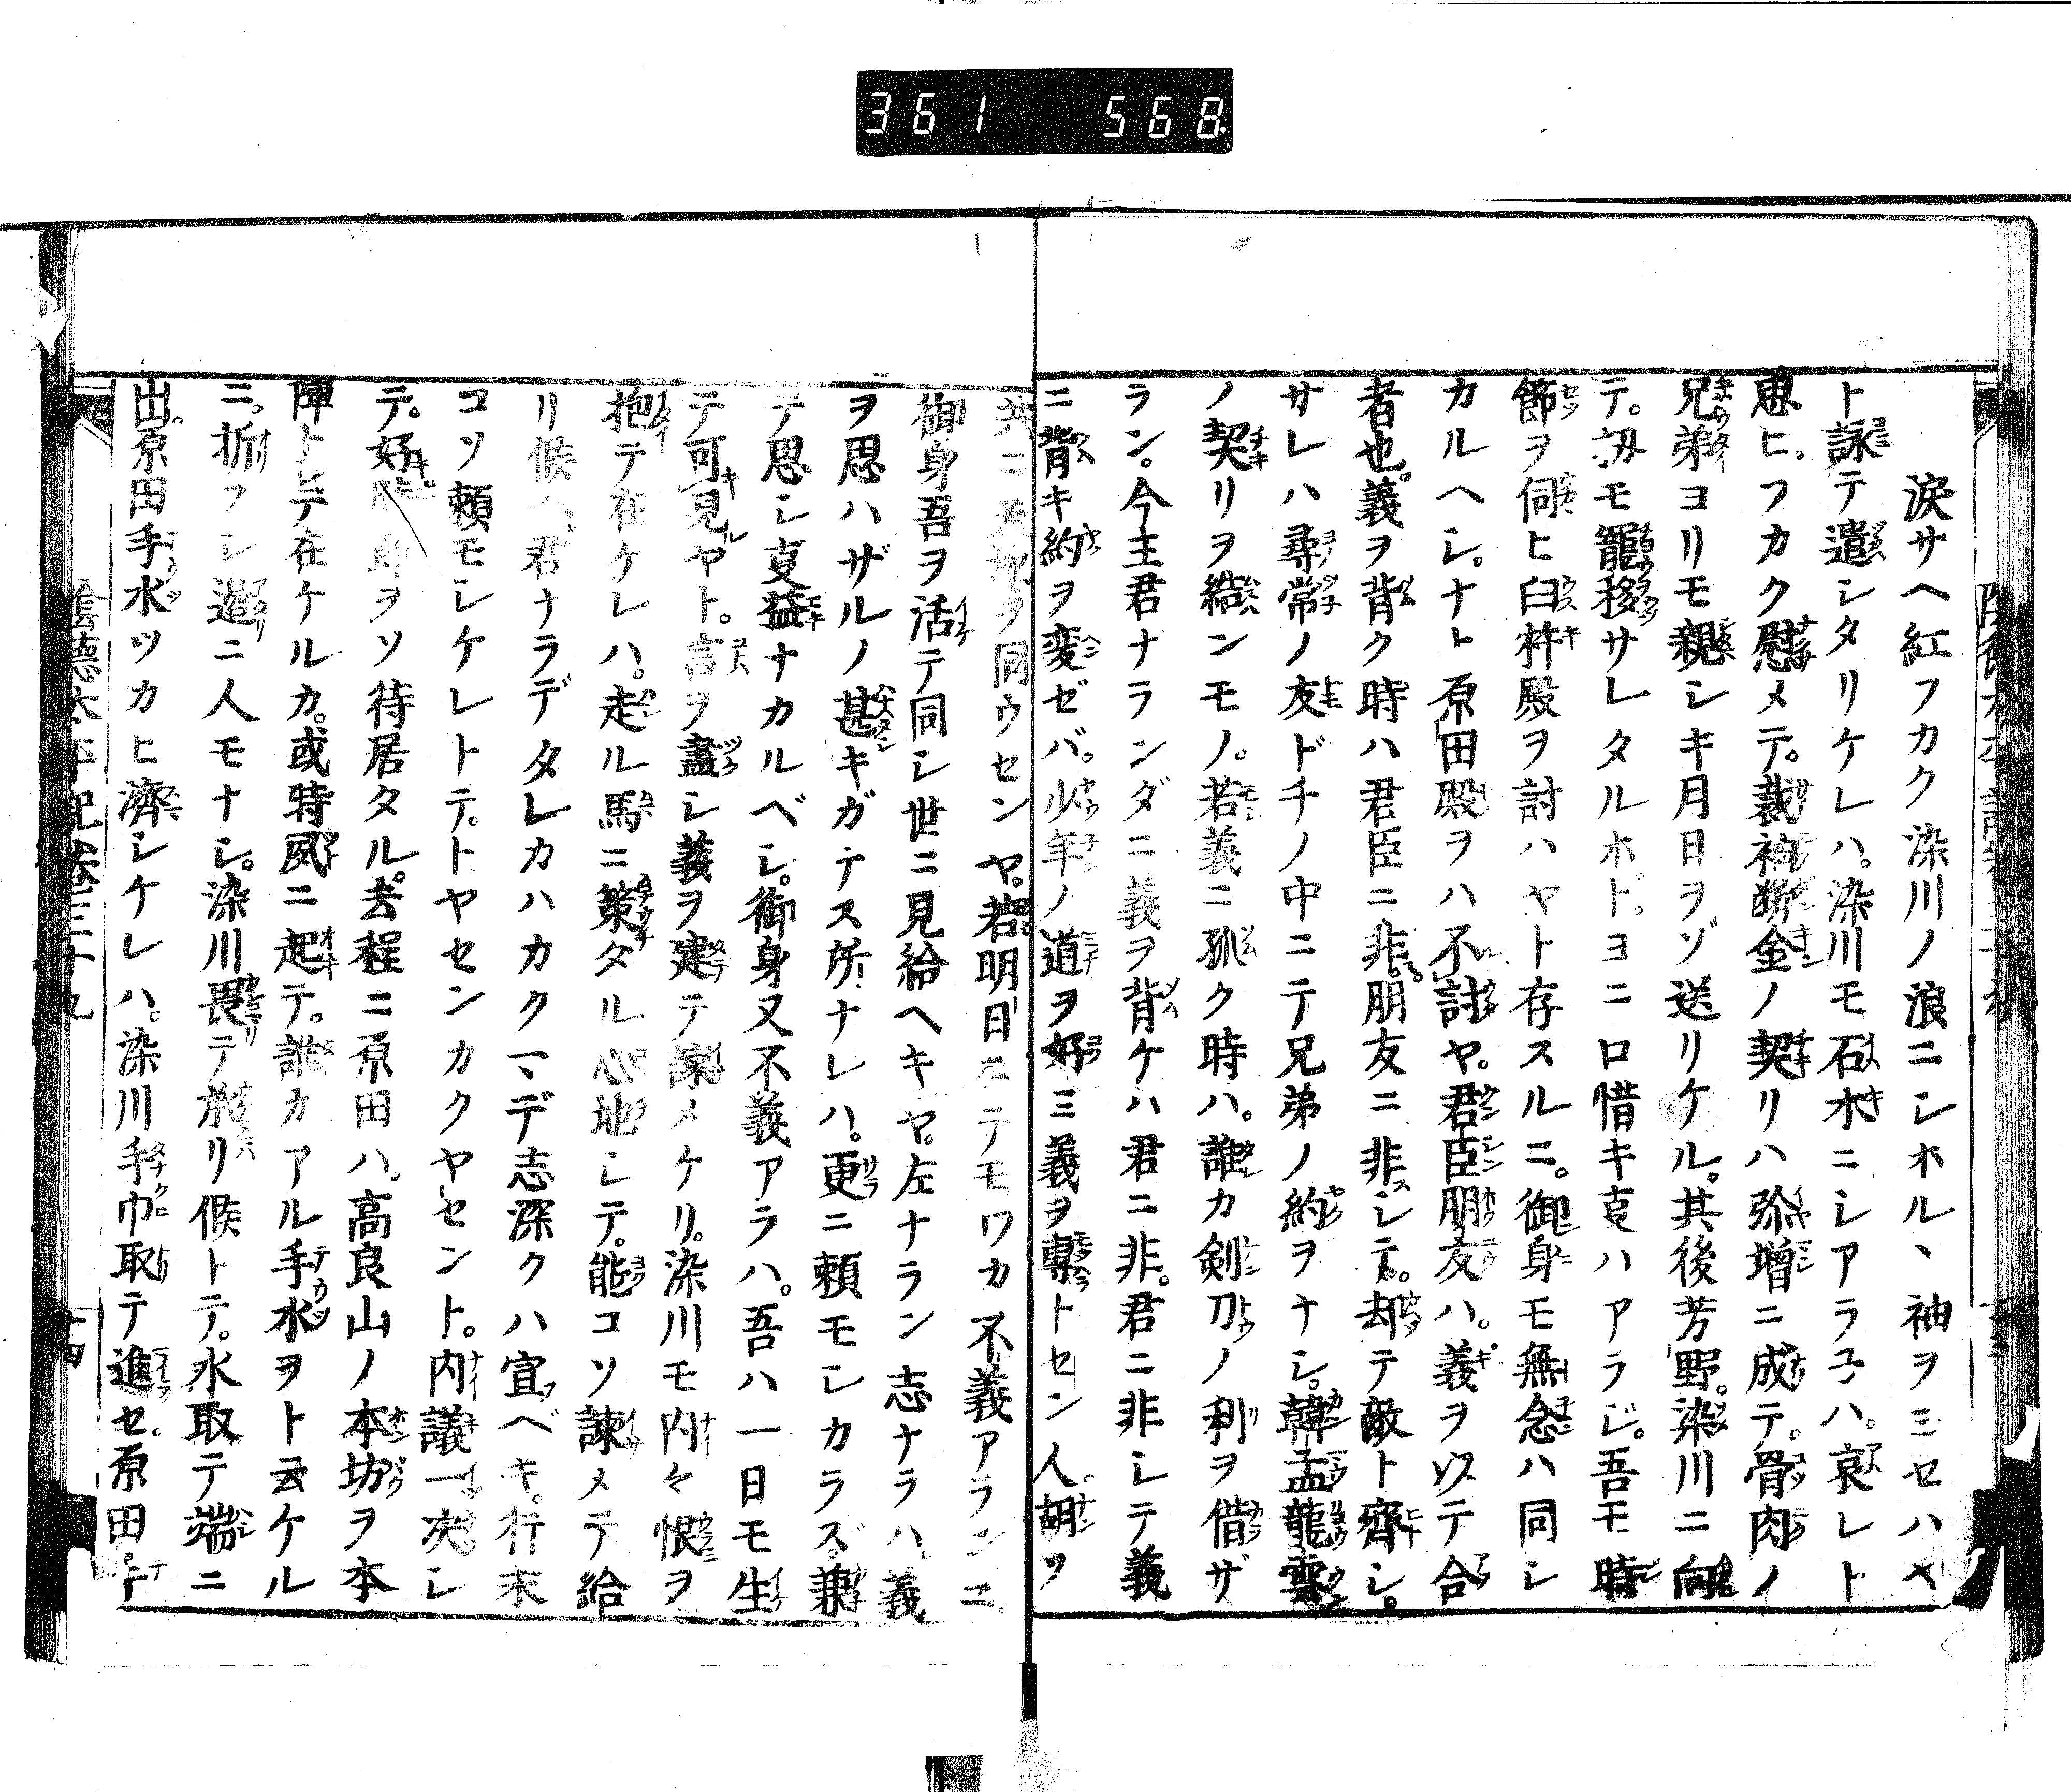 361 568
涙サヘ紅フカク染川ノ浪ニシホルヽ袖ヲミセハヤ
ト詠テ遣シタリケレハ。染川モ石木ニシアラ子ハ。哀レト
思ヒ。フカク慰メテ。裁袖断金ノ契リハ弥増ニ成テ。骨肉ノ
兄弟ヨリモ親シキ月日ヲゾ送リケル。其後芳野。染川ニ向
テ。扨モ寵移サレタルホド。ヨニ口惜キ㕝ハアラジ。吾モ時
節ヲ伺ヒ臼杵殿ヲ討ハヤト存スルニ。御身モ無念ハ同シ
カルヘシ。ナト原田殿ヲハ不討ヤ。君臣朋友ハ。義ヲ以テ合
者也。義ヲ背ク時ハ君臣ニ非。朋友ニ非シテ。却テ敵ト齊シ。
サレハ尋常ノ友ドチノ中ニテ兄弟ノ約ヲナシ。韓孟龍雲
ノ契リヲ結ンモノ。若義ニ孤ク時ハ。誰カ剣刀ノ利ヲ借ザ
ラン。今主君ナランダニ義ヲ背ケハ君ニ非。君ニ非シテ義
ニ背キ約ヲ変ゼバ。少年ノ道ヲ好ミ義ヲ専トセン人。胡ソ
ヲ同ウセンヤ。若明日ニテモワカ不義アランニ
御身吾ヲ活テ同シ世ニ見給ヘキヤ。左ナラン志ナラハ。義
ヲ思ハザルノ甚キガナス所ナレハ。更ニ頼モシカラズ。兼
テ思シ㕝益ナカルベシ。御身又不義アラハ。吾ハ一日モ生
テ可見ヤト。言ヲ盡シ義ヲ建テ諫メケリ。染川モ内々恨ヲ
抱テ在ケレハ。走ル馬ニ策タル心地シテ。能コソ諫メテ給
リ候ヘ。君ナラデタレカハカクマデ志深クハ宣ベキ。行末
コソ頼モシケレトテ。トヤセンカクヤセント。内議一决シ
テ。好ヲソ待居タル。去程ニ原田ハ。高良山ノ本坊ヲ本
陣トシテ在ケルカ。或時夙ニ起テ。誰カアル手水ヲト云ケル
ニ。折フシ邊ニ人モナシ。染川畏テ承リ候トテ。水取テ端ニ
出。原田手水ツカヒ濟シケレハ。染川手巾取テ進セ。原田手
陰德太平記巻三十九
十四